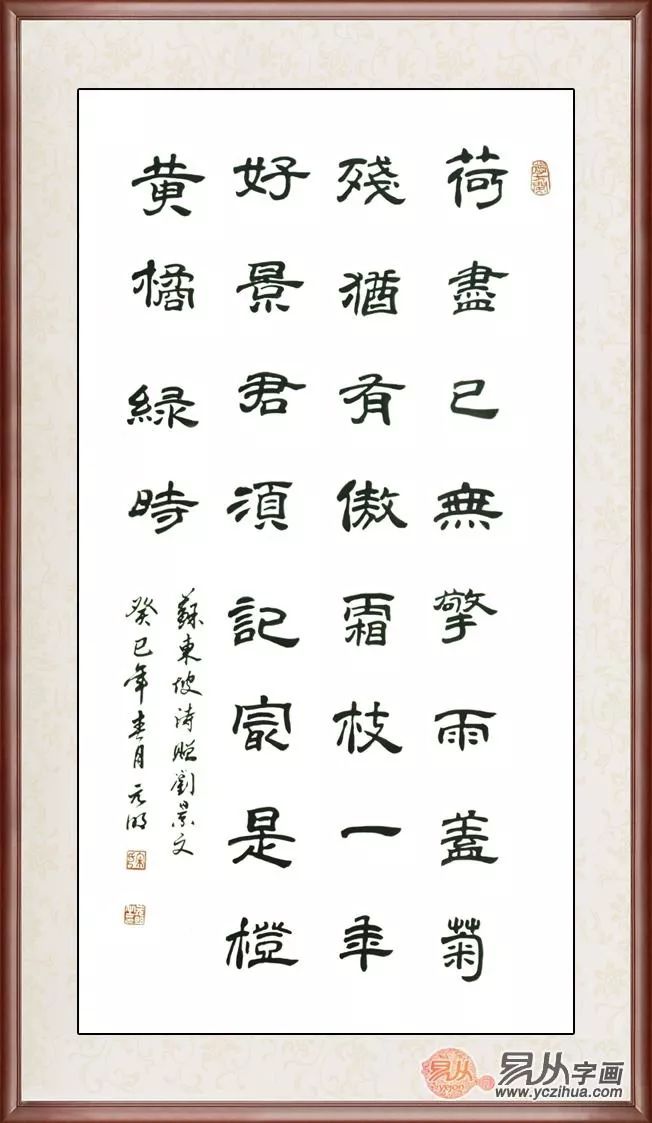 荷盡已無擎雨蓋菊
殘猶有傲霜枝一年
好景君須記冣是橙
黄橘緑時
蘇東坡詩贈劉景文
癸巳年春月元明
易从字画
www.yczihua.com